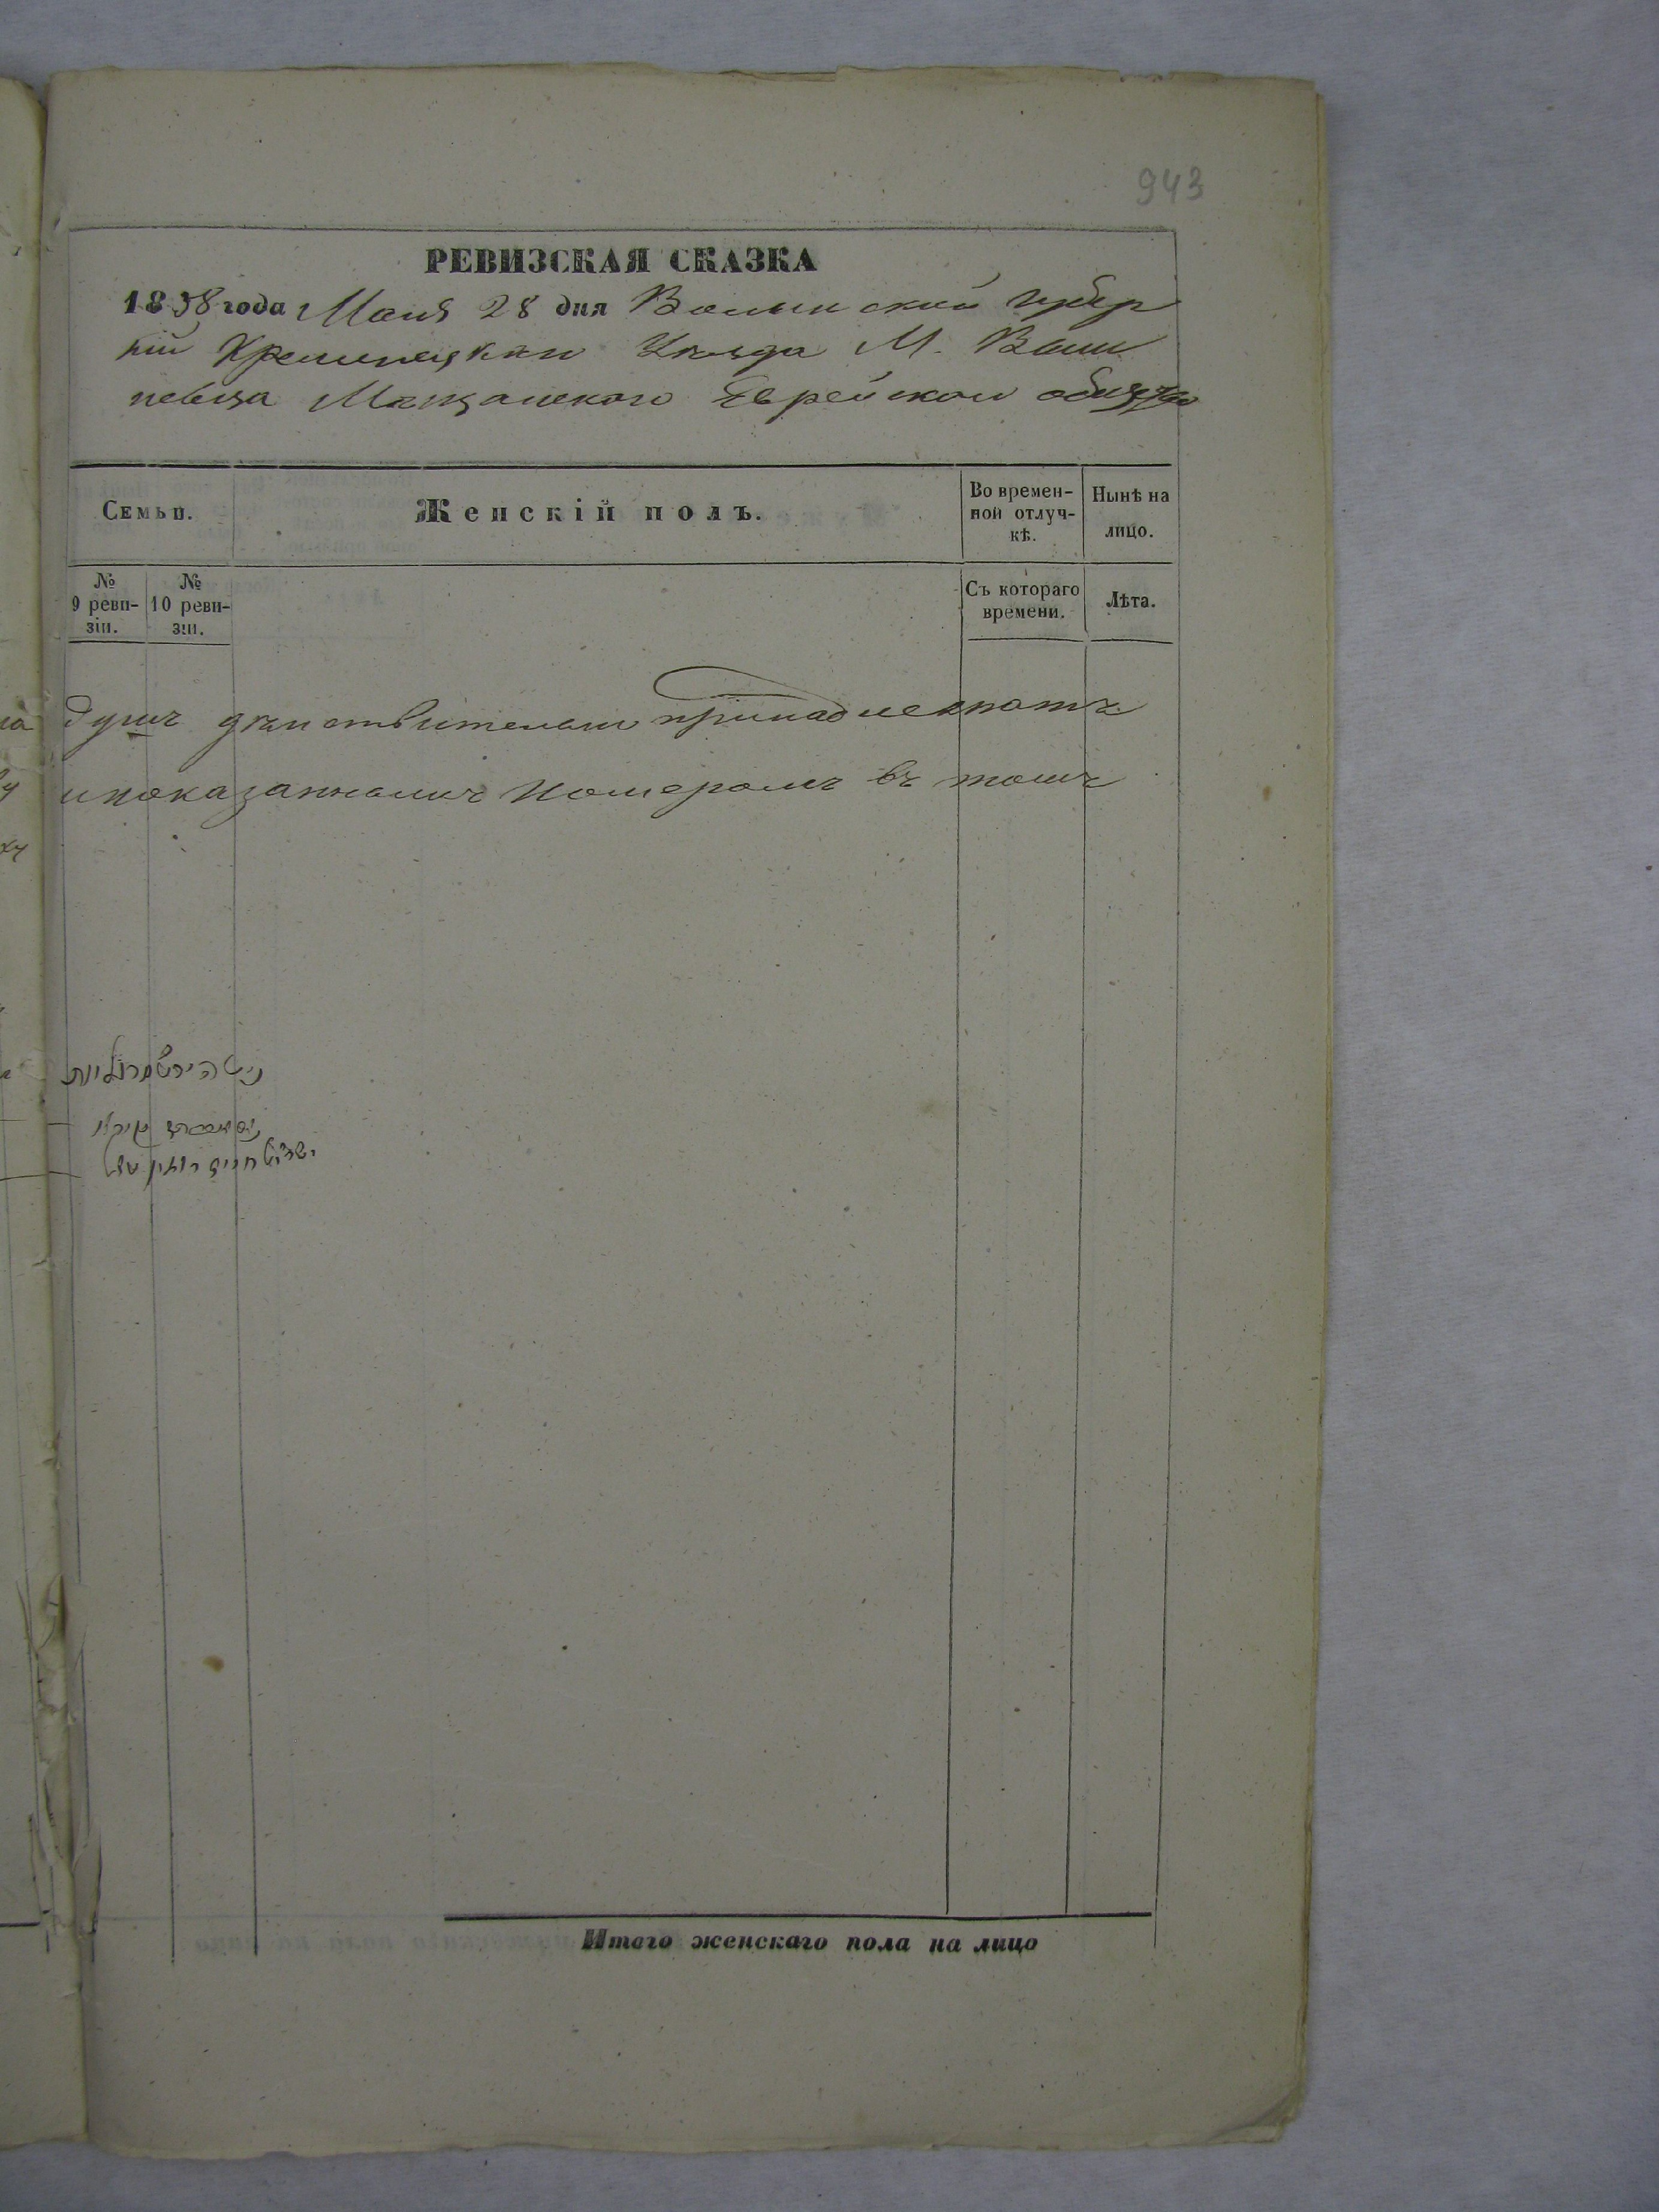 943
РЕВИЗСКАЯ СКАЗКА
1858 года Маия 28 дня Волынской Губер
ніи Кременецкаго Уѣзда М. Выш
невца Мѣщанскаго Еврейскаго обще
Семьи.
Женскій полъ.
Во времен-
ной отлуч-
кѣ.
Нынѣ на
лицо.
№
9 реви-
зіи.
№
10 реви-
зіи.
Съ котораго
времени.
Лѣта.
душъ дѣйствительно принадлежатъ
и показаннымъ Номеромъ въ томъ
Итого женскаго пола на лицо